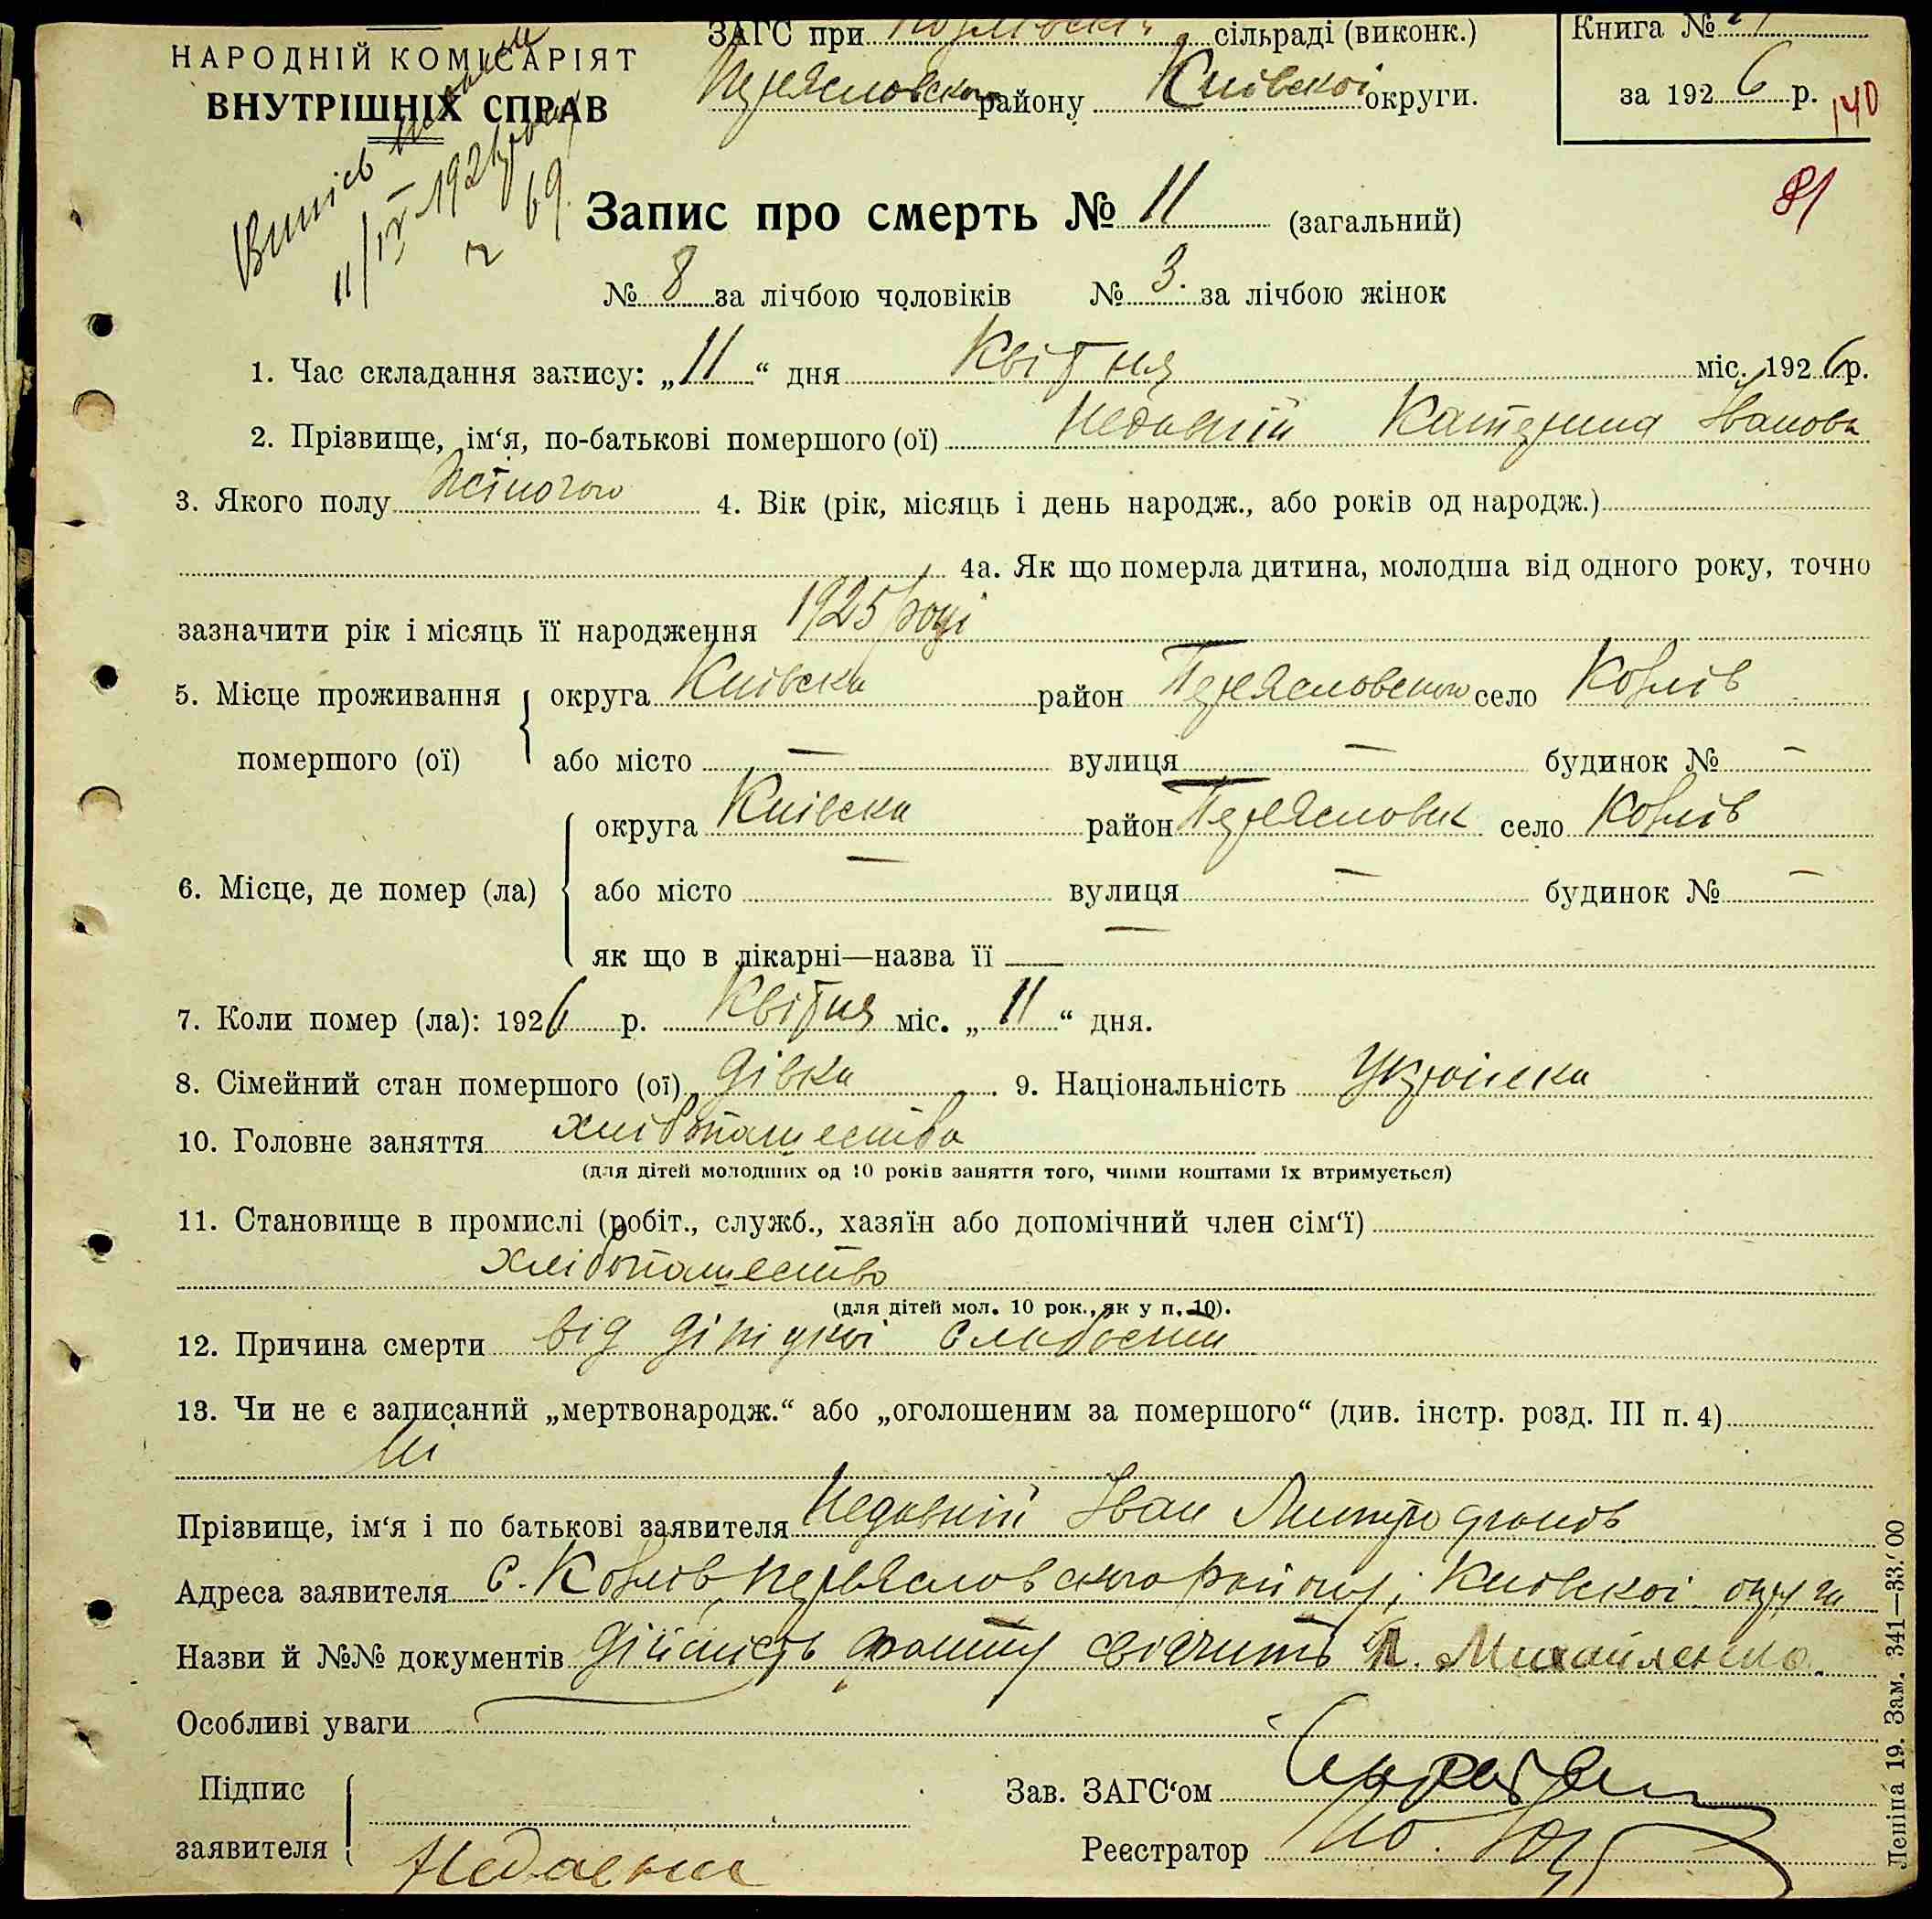 НАРОДНІЙ КОМІСАРІЯТ
ВНУТРІШНІХ СПРАВ
ЗАГС при сільраді (виконк.)
району Київскої округи.
Книга №
за 1926 р.
140
81
Запис про смерть № 11 (загальний)
№ 8 за лічбою чоловіків № 3. за лічбою жінок
1. Час складання запису: „11“ дня Квітня міс. 1926 р.
2. Прізвище, ім‘я, по-батькові помершого (ої) Недавній Катерина Іванова
3. Якого полу Жіночого 4. Вік (рік, місяць і день народж., або років од народж.)
4а. Як що померла дитина, молодша від одного року, точно
зазначити рік і місяць її народження 1925 році
5. Місце проживання округа Київска район Переясловского село Козлів
помершого (ої) або місто — вулиця — будинок № —
округа Київска район Переясловск село Козлів
6. Місце, де помер (ла) або місто — вулиця — будинок № —
як що в лікарні—назва її —
7. Коли помер (ла): 1926 р. Квітня міс. „11“ дня.
8. Сімейний стан помершого (ої) дівка 9. Національність Українка
10. Головне заняття хлібопашество
(для дітей молодших од 10 років заняття того, чиїми коштами їх втримується)
11. Становище в промислі (робіт., служб., хазяїн або допомічний член сім‘ї)
хлібопашество
(для дітей мол. 10 рок., як у п. 10).
12. Причина смерти від слабости
13. Чи не є записаний „мертвонародж.“ або „оголошеним за помершого“ (див. інстр. розд. III п. 4)
Ні
Прізвище, ім‘я і по батькові заявителя Недавній Іван Митрофанов
Адреса заявителя с. Козлів, Переясловского району, Київскої округи
Назви й №№ документів дійсність факту свідчить Михайленко.
Особливі уваги
Підпис
заявителя
Зав. ЗАГС‘ом
Реєстратор
Леніпа 19. Зам. 341—33.'00